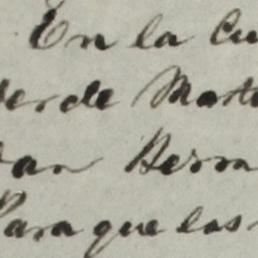 En la Cu
de Mart
Juan Bern
Para que las